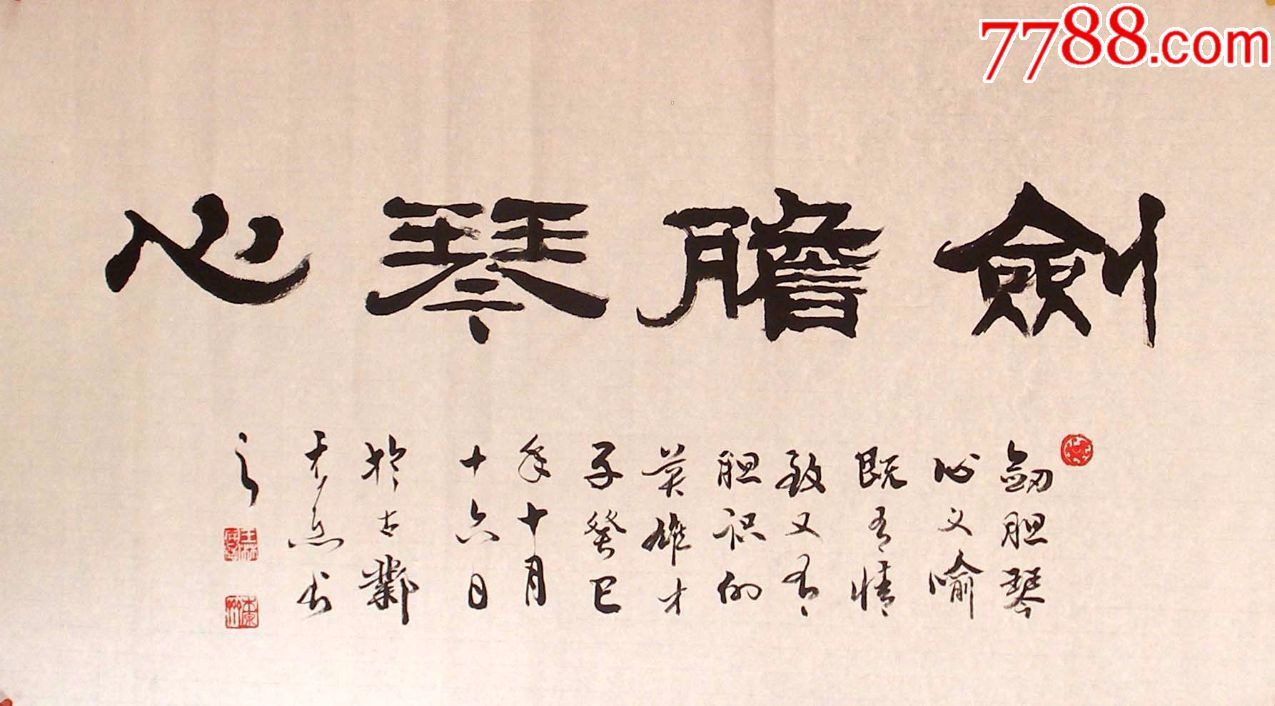 7788.com
劍膽琴心
劒胆琴
心又喻
既有情
致又有
胆识的
英雄才
子癸巳
年十月
十六日
於古鄴
书